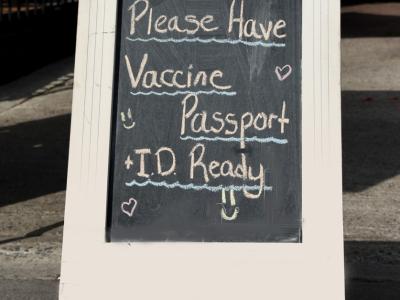 Please Have
Vaccine
Passport
+ I.D. Ready